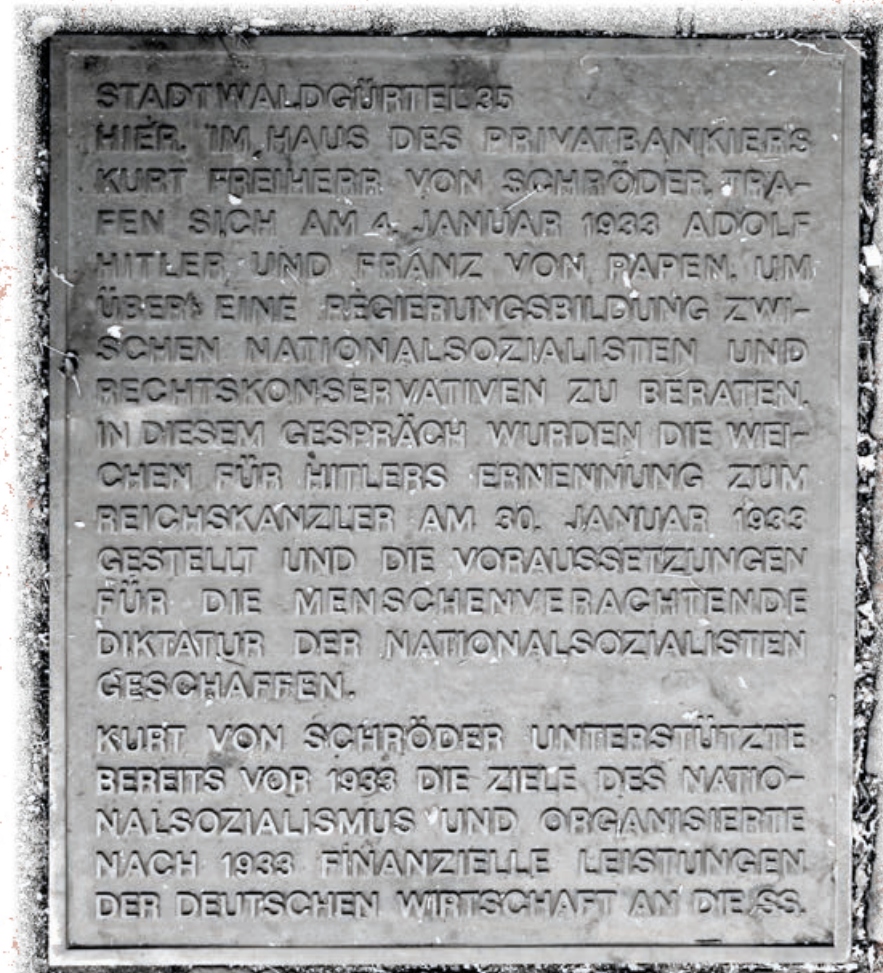 STADTWALDGÜRTEL 35
HIER, IM HAUS DES PRIVATBANKIERS
KURT FREIHERR VON SCHRÖDER, TRA-
FEN SICH AM 4. JANUAR 1933 ADOLF
HITLER UND FRANZ VON PAPEN, UM
ÜBER EINE REGIERUNGSBILDUNG ZWI-
SCHEN NATIONALSOZIALISTEN UND
RECHTSKONSERVATIVEN ZU BERATEN.
IN DIESEM GESPRÄCH WURDEN DIE WEI-
CHEN FÜR HITLERS ERNENNUNG ZUM
REICHSKANZLER AM 30. JANUAR 1933
GESTELLT UND DIE VORAUSSETZUNGEN
FÜR DIE MENSCHENVERACHTENDE
DIKTATUR DER NATIONALSOZIALISTEN
GESCHAFFEN.
KURT VON SCHRÖDER UNTERSTÜTZTE
BEREITS VOR 1933 DIE ZIELE DES NATIO-
NALSOZIALISMUS UND ORGANISIERTE
NACH 1933 FINANZIELLE LEISTUNGEN
DER DEUTSCHEN WIRTSCHAFT AN DIE SS.